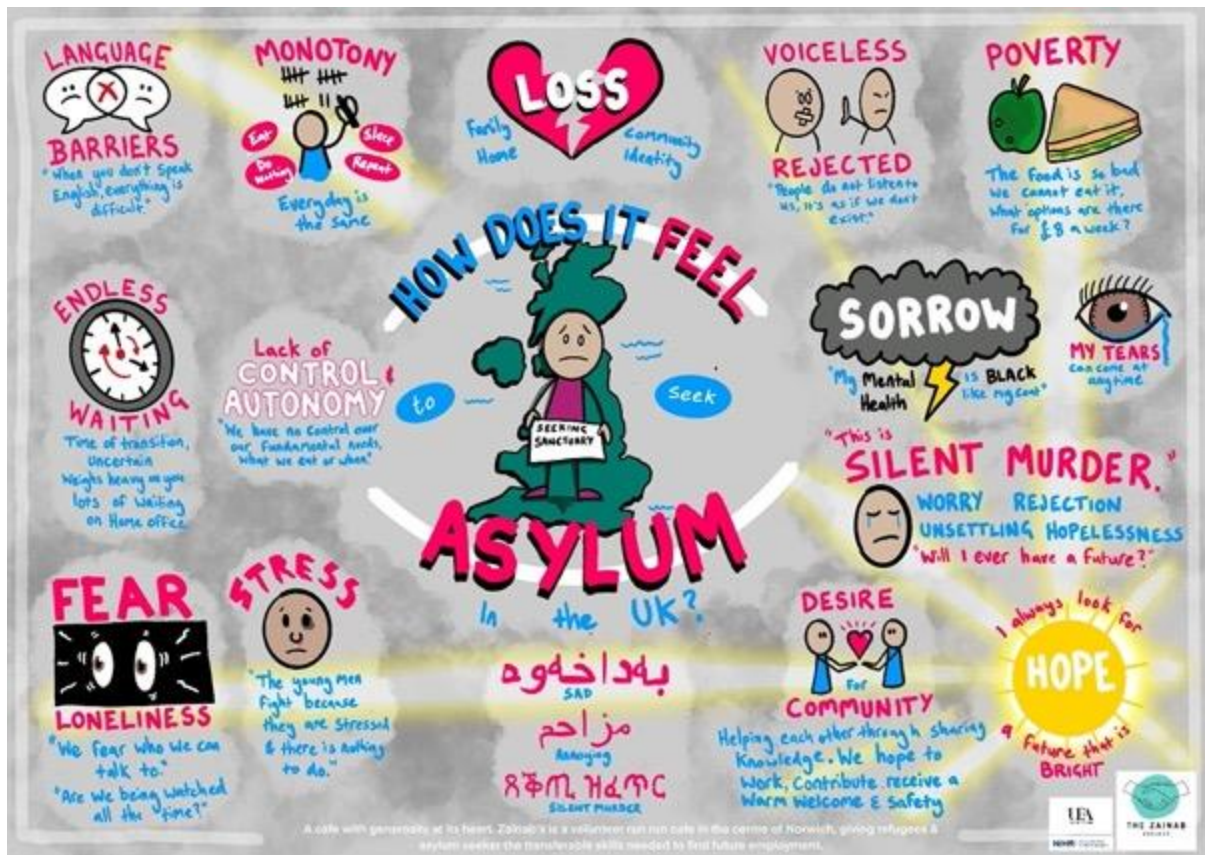 LANGUAGE
BARRIERS
"When you don't speak
English, everything is
difficult."
MONOTONY
Eat
Sleep
Do
Nothing
Repeat
Everyday is
the same
LOSS
Family
Home
Community
Identity
VOICELESS
REJECTED
"People do not listen to
us, it's as if we don't
exist."
POVERTY
The food is so bad
we cannot eat it,
what options are there
for £8 a week?
ENDLESS
WAITING
Time of transition,
uncertain
Weighs heavy on you
lots of waiting
on Home office
Lack of
CONTROL &
AUTONOMY
"We have no control over
our fundamental needs,
what we eat or when."
HOW DOES IT FEEL
to
seek
SEEKING
SANCTUARY
ASYLUM
In the UK?
SORROW
"My Mental
Health
is BLACK
like my coat"
MY TEARS
can come at
anytime
"This is
SILENT MURDER."
WORRY REJECTION
UNSETTLING HOPELESSNESS
"Will I ever have a future?"
FEAR
LONELINESS
"We fear who we can
talk to."
"Are we being watched
all the time?"
STRESS
"The young men
fight because
they are stressed
& there is nothing
to do."
بەداخەوە
SAD
مزاحم
Annoying
ጸቅጢ ዝፈጥር
SILENT MURDER
DESIRE
For
COMMUNITY
Helping each other through sharing
knowledge. We hope to
work, contribute, receive a
warm welcome & safety
I always look for
HOPE
a future that is
BRIGHT
A cafe with generosity at its heart. Zainab's is a volunteer run run cafe in the centre of Norwich, giving refugees &
asylum seeker the transferable skills needed to find future employment.
UEA
NIHR
THE ZAINAB
PROJECT